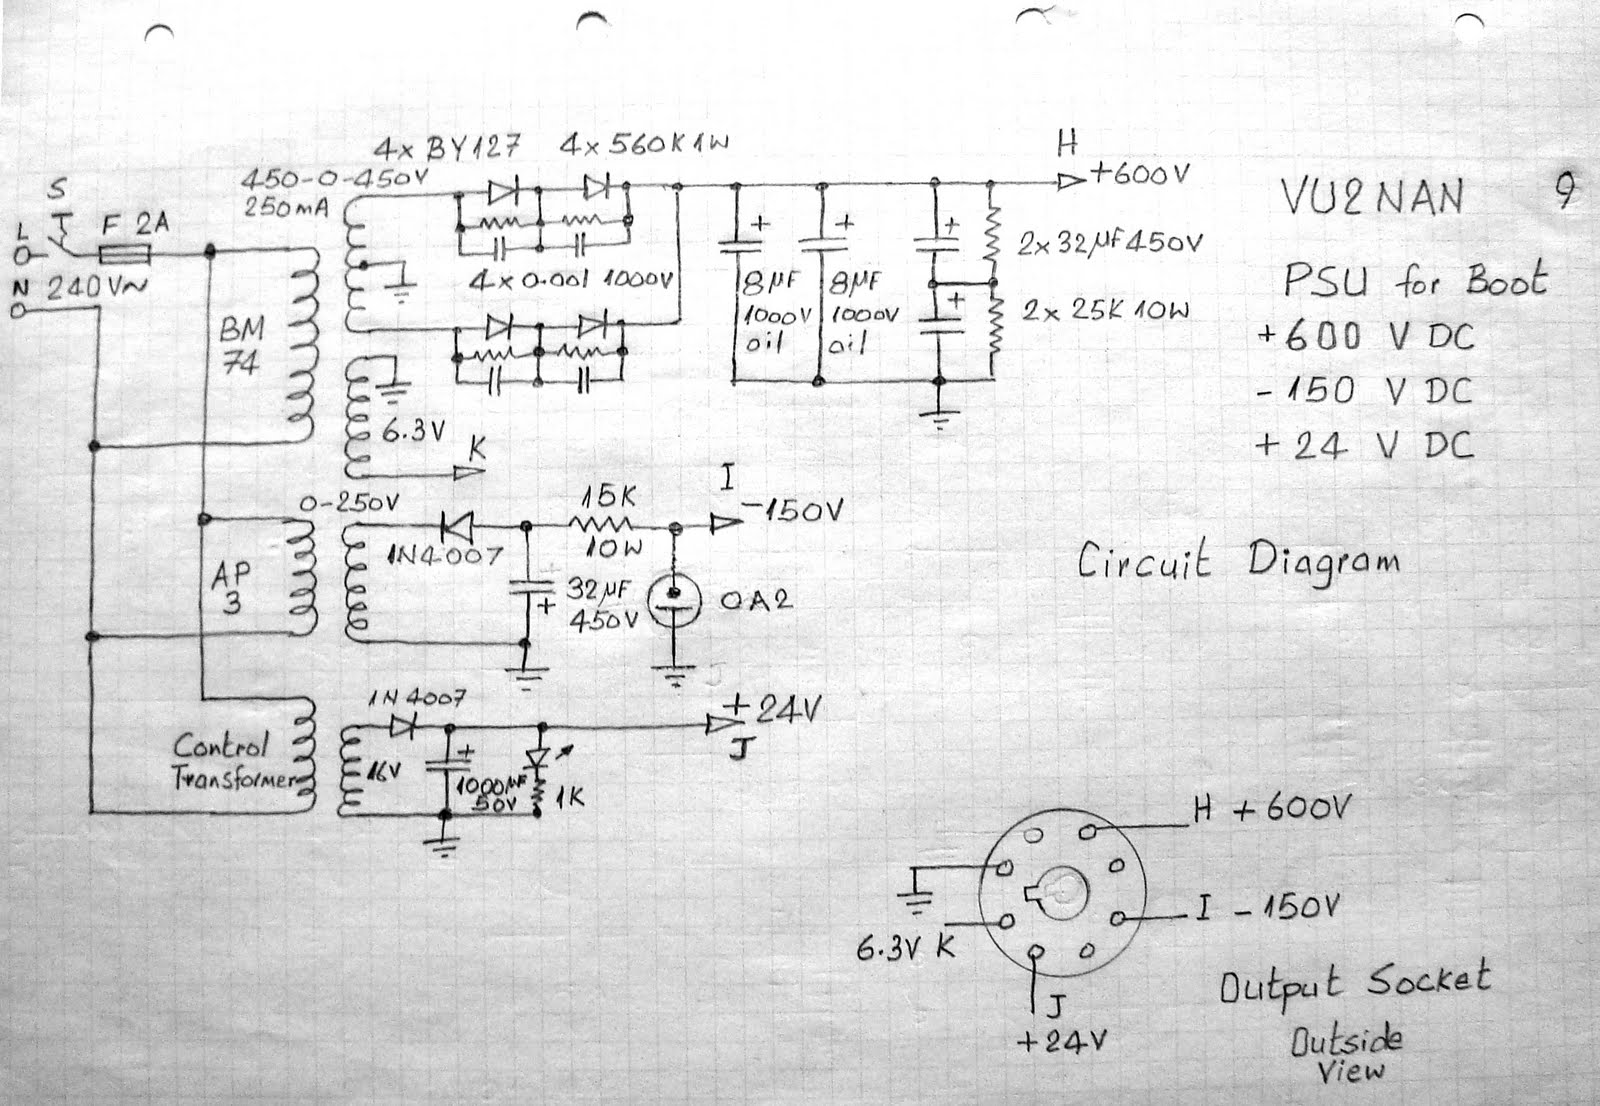 VU2NAN 9
PSU for Boot
+600 V DC
-150 V DC
+24 V DC
Circuit Diagram
4x BY127
4x 560K 1W
450-0-450V
250mA
S
L
F 2A
N 240V~
BM
74
4 x 0.001 1000V
H
+600V
8µF
1000V
oil
8µF
1000V
oil
2x 32µF 450V
2x 25K 10W
+
+
+
+
6.3V
K
0-250V
AP
3
1N4007
15K
10W
I
-150V
32µF
450V
+
OA2
1N4007
Control
Transformer
16V
+
1000µF
50V
1K
+24V
J
H +600V
I -150V
6.3V K
J
+24V
Output Socket
Outside
View